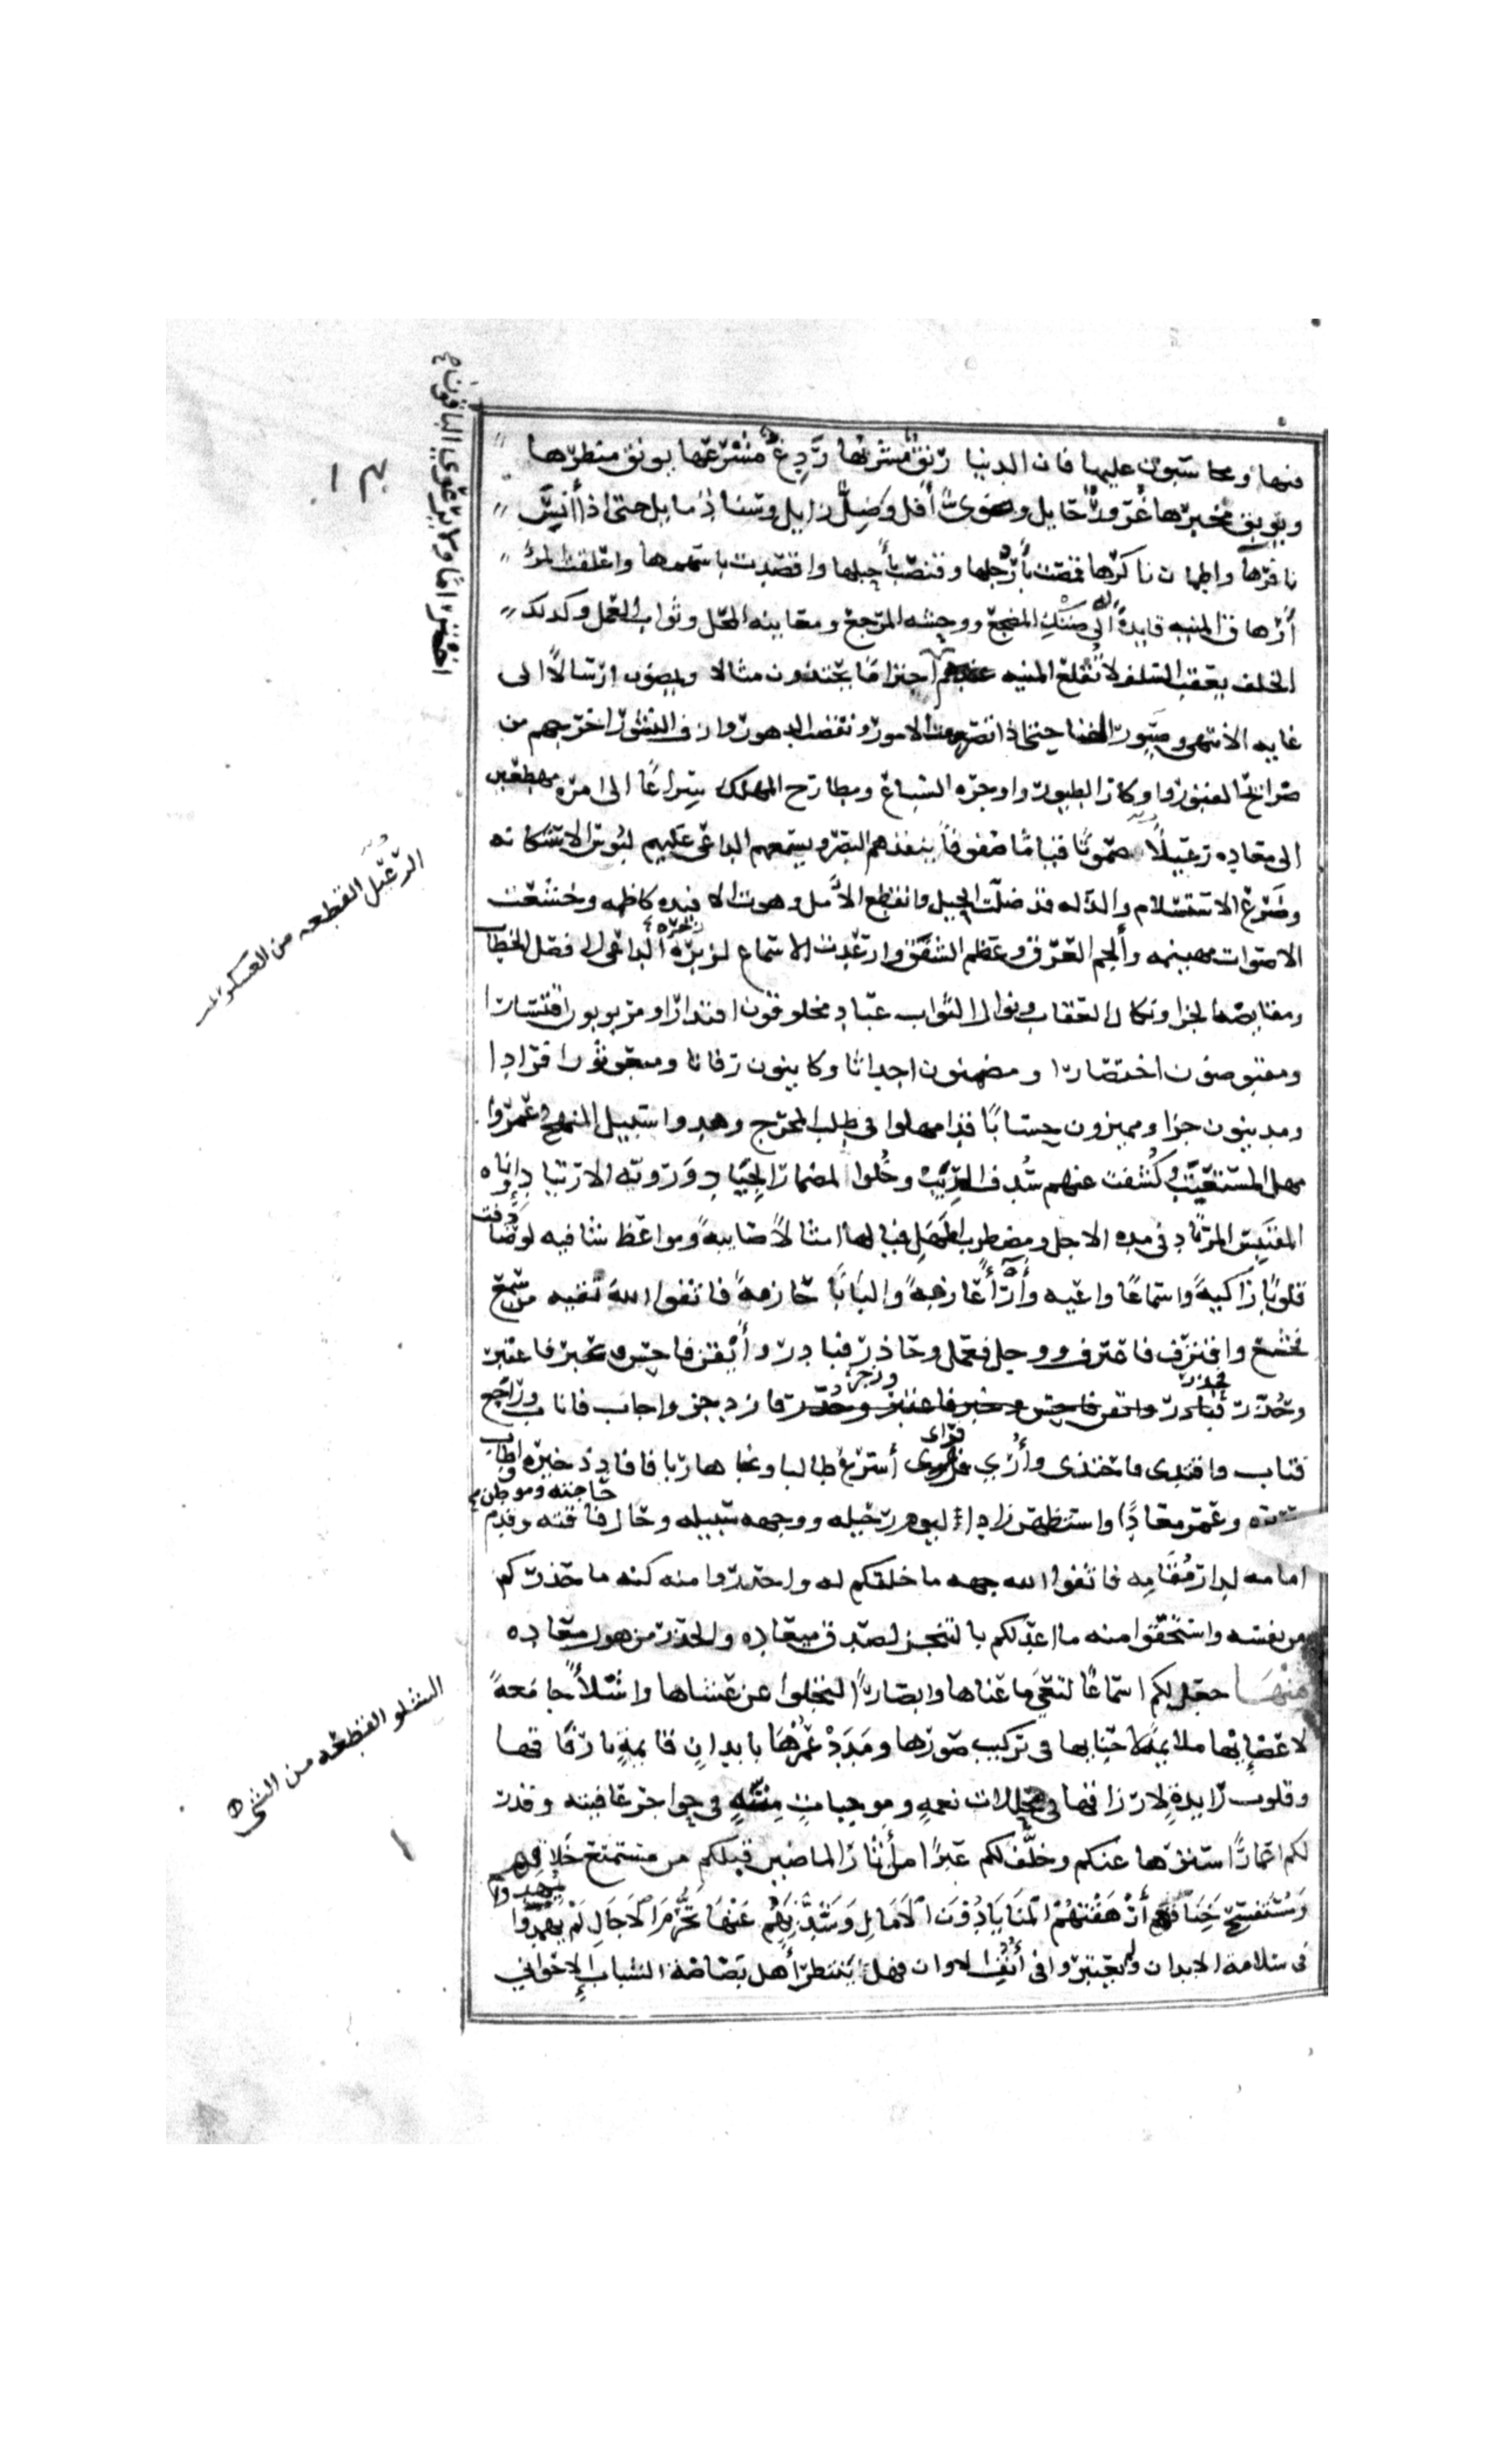 فيها ومحاسبون عليها فان الدنيا رنق مشربها ردغ مشرعها يونق منظرها
ويوبق مخبرها غرور حايل وضوء آفل وظل زايل وسناد مايل حتى اذا أنس
نافرها واطمان ناكرها قمصت بأرجلها وقنصت بأحبلها واقصدت باسهمها واعلقت المرء
أوهاق المنيه قايدة له إلى ضنك المضجع ووحشه المرجع ومعاينه المحل وثواب العمل وكذلك
الخلف يعقب السلف لا تقلع المنيه اختراما
يحتذون مثالا ويمضون ارسالا الى
غايه الانتهى وصيور الفنا حتى اذا تصرمت الامور وتقضت الدهور وازف النشور اخرجهم من
ضرايح القبور واوكار الطيور واوجره السباع ومطارح المهالك سراعا الى امره مهطعين
الى معاده رعيلا صموتا قياما صفوفا ينفذهم البصر ويسمعهم الداعى عليهم لبوس الاستكانه
وضرع الاستسلام والذله قد ضلت الحيل وانقطع الأمل وهوت الافيده كاظمه وخشعت
الاصوات مهينمه وألجم العرق وعظم الشفق وارعدت الاسماع لزبره الداعى الى فصل الخطاب
ومقايضه الجزا ونكال العقاب ونوال الثواب عباد مخلوقون اقتدارا ومربوبون اقتسارا
ومقبوضون احتضارا ومضمنون اجداثا وكاينون رفاتا ومبعوثون افرادا
ومدينون جزا ومميزون حسابا قد امهلوا فى طلب المخرج وهدوا سبيل المنهج وعمروا
مهل المستعتب وكشفت عنهم سدف الريب وخلوا لمضمار الجياد وروية الارتياد وأناه
المقتبس المرتاد فى مده الاجل ومضطرب المهل فيالها امثالا صايبة ومواعظ شافيه لو صادفت
قلوبا زاكية واسماعا واعيه وأرآء عازمة والبابا حازمة فاتقوا الله تقيه من سمع
فخشع واقترف فاعترف ووجل فعمل وحاذر فبادر وأيقن فاحسن وعبر فاعتبر
وحذر فحذر وزجر فازدجر واجاب فاناب وراجع
فتاب واقتدى فاحتذى وأري فراى فاسرع طالبا ونجا هاربا فافاد ذخيره واطاب
سريره وعمر معادا واستظهر زادا ليوم رحيله ووجه سبيله وحال حاجته وموطن فاقته وقدم
امامه لدار مقامه فاتقوا الله جهه ما خلقكم له واحذروا منه كنه ما حذركم
من نفسه واستحقوا منه ما اعد لكم بالتنجز لصدق ميعاده والحذر من هول معاده
منها جعل لكم اسماعا لتعي ما عناها وابصارا لتجلوا عن عشاها واشلاء جامعة
لاعضايها ملايمة لاحنايها فى تركيب صورها ومدد عمرها بابدان قايمة بارفاقها
وقلوب رايدة لارزاقها فى مجللات نعمه وموجبات مننه وحواجز عافيته وقدر
لكم اعمارا سترها عنكم وخلف لكم عبرا من أثار الماضين قبلكم من مستمتع خلاقهم
ومستفسح خناقهم أرهقتهم المنايا دون الآمال وشذبهم عنها تخرم الآجال لم يمهدوا
فى سلامة الابدان ولم يعتبروا فى أنف الاوان فهل ينتظر أهل بضاضة الشباب إلا حواني
الرعيل القطعه من العسكر
الشلو القطعه من الشى